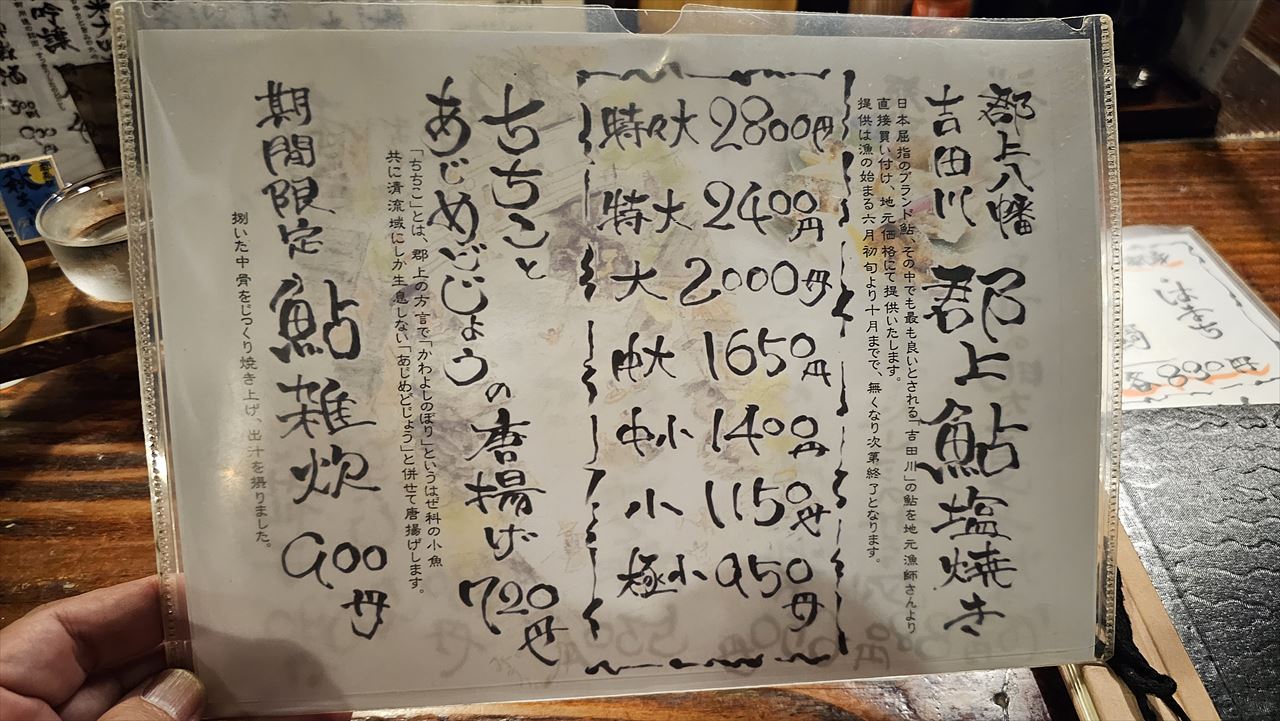 郡上八幡
吉田川
郡上鮎塩焼き
日本屈指のブランド鮎、その中でも最も良いとされる「吉田川」の鮎を地元漁師さんより
直接買い付け、地元価格にて提供いたします。
提供は漁の始まる六月初旬より十月までで、無くなり次第終了となります。
特々大 2800円
特大 2400円
大 2000円
中大 1650円
中小 1400円
小 1150円
極小 950円
ちちこと
あじめどじょうの唐揚げ 720円
「ちちこ」とは、郡上の方言で「かわよしのぼり」というはぜ科の小魚
共に清流域にしか生息しない「あじめどじょう」と併せて唐揚げします。
期間限定 鮎雑炊 900円
捌いた中骨をじっくり焼き上げ、出汁を摂りました。
吟醸